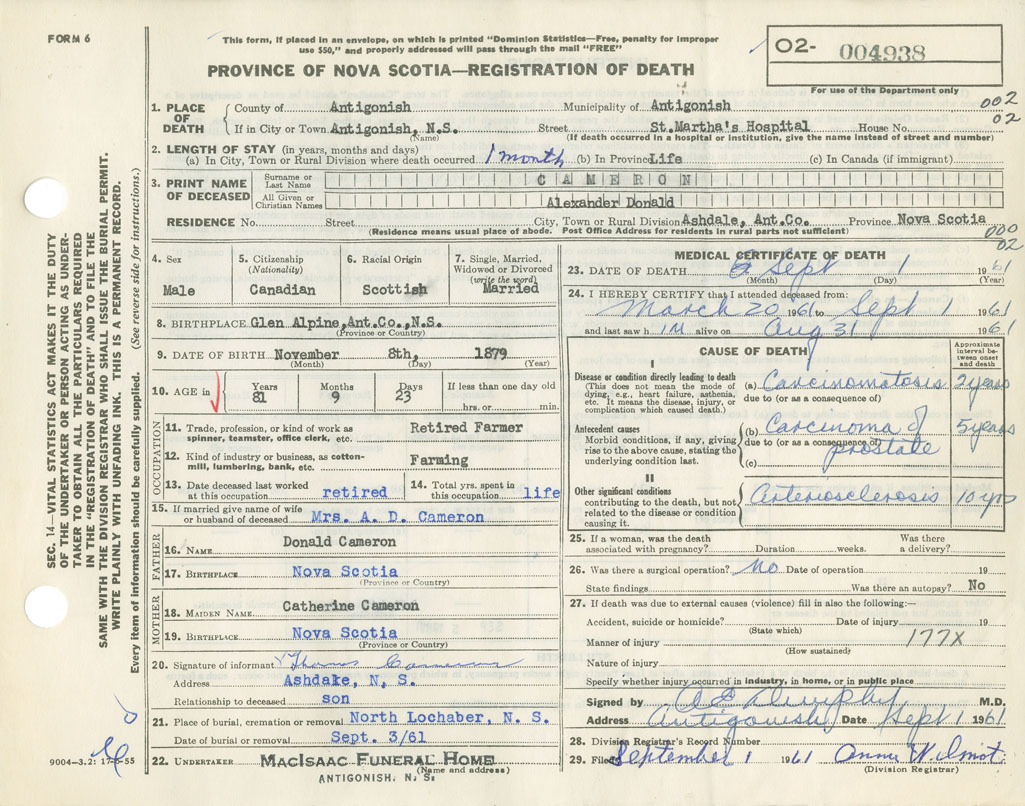 FORM 6
This form, if placed in an envelope, on which is printed "Dominion Statistics—Free, penalty for improper
use $50," and properly addressed will pass through the mail "FREE"
PROVINCE OF NOVA SCOTIA—REGISTRATION OF DEATH
02- 004938
For use of the Department only
002
02
1. PLACE OF DEATH County of Antigonish Municipality of Antigonish
If in City or Town Antigonish, N.S. Street St.Martha's Hospital House No.
(Name) (If death occurred in a hospital or institution, give the name instead of street and number)
2. LENGTH OF STAY (in years, months and days)
(a) In City, Town or Rural Division where death occurred 1 month (b) In Province Life (c) In Canada (if immigrant)
3. PRINT NAME OF DECEASED
Surname or Last Name CAMERON
All Given or Christian Names Alexander Donald
RESIDENCE No. Street City, Town or Rural Division Ashdale, Ant.Co. Province Nova Scotia
(Residence means usual place of abode. Post Office Address for residents in rural parts not sufficient)
000
02
4. Sex
Male
5. Citizenship
(Nationality)
Canadian
6. Racial Origin
Scottish
7. Single, Married, Widowed or Divorced
(write the word)
Married
8. BIRTHPLACE Glen Alpine,Ant.Co.,N.S.
(Province or Country)
9. DATE OF BIRTH November 8th, 1879
(Month) (Day) (Year)
10. AGE in
Years 81
Months 9
Days 23
If less than one day old
hrs. or min.
OCCUPATION
11. Trade, profession, or kind of work as spinner, teamster, office clerk, etc. Retired Farmer
12. Kind of industry or business, as cotton-mill, lumbering, bank, etc. Farming
13. Date deceased last worked at this occupation retired
14. Total yrs. spent in this occupation life
15. If married give name of wife or husband of deceased Mrs. A. D. Cameron
FATHER
16. NAME Donald Cameron
17. BIRTHPLACE Nova Scotia
(Province or Country)
MOTHER
18. MAIDEN NAME Catherine Cameron
19. BIRTHPLACE Nova Scotia
(Province or Country)
20. Signature of informant Thomas Cameron
Address Ashdake, N. S.
Relationship to deceased son
21. Place of burial, cremation or removal North Lochaber, N. S.
Date of burial or removal Sept. 3/61
22. UNDERTAKER MACISAAC FUNERAL HOME
(Name and address)
ANTIGONISH, N. S.
MEDICAL CERTIFICATE OF DEATH
23. DATE OF DEATH Sept 1 1961
(Month) (Day) (Year)
24. I HEREBY CERTIFY that I attended deceased from:
March 20 1961 to Sept 1 1961
and last saw him alive on Aug 31 1961
CAUSE OF DEATH
Approximate interval between onset and death
I
Disease or condition directly leading to death
(This does not mean the mode of dying, e.g., heart failure, asthenia, etc. It means the disease, injury, or complication which caused death.)
(a) Carcinomatosis 2 years
due to (or as a consequence of)
Antecedent causes
Morbid conditions, if any, giving rise to the above cause, stating the underlying condition last.
(b) Carcinoma of prostate 5 years
due to (or as a consequence of)
(c)
II
Other significant conditions
contributing to the death, but not related to the disease or condition causing it.
Arteriosclerosis 10 yrs
25. If a woman, was the death associated with pregnancy? Duration weeks. Was there a delivery?
26. Was there a surgical operation? No Date of operation 19
State findings Was there an autopsy? No
27. If death was due to external causes (violence) fill in also the following:—
Accident, suicide or homicide? Date of injury 19
(State which)
Manner of injury 177X
(How sustained)
Nature of injury
Specify whether injury occurred in industry, in home, or in public place
Signed by M.D.
Address Antigonish Date Sept 1 1961
28. Division Registrar's Record Number
29. Filed September 1 1961 Anna Wilmot
(Division Registrar)
SEC. 14—VITAL STATISTICS ACT MAKES IT THE DUTY
OF THE UNDERTAKER OR PERSON ACTING AS UNDER-
TAKER TO OBTAIN ALL THE PARTICULARS REQUIRED
IN THE "REGISTRATION OF DEATH" AND TO FILE THE
SAME WITH THE DIVISION REGISTRAR WHO SHALL ISSUE THE BURIAL PERMIT.
WRITE PLAINLY WITH UNFADING INK. THIS IS A PERMANENT RECORD.
Every item of information should be carefully supplied. (See reverse side for instructions.)